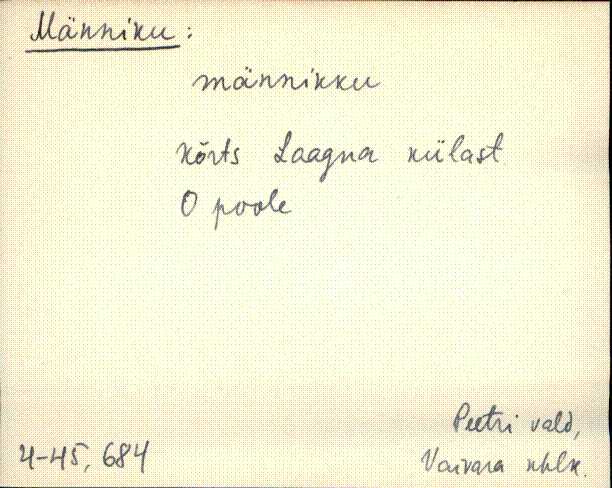 Männiku:
männikku
kõrts Laagna külast
O poole
Peetri vald,
4-45, 684
Vaivara khlk.